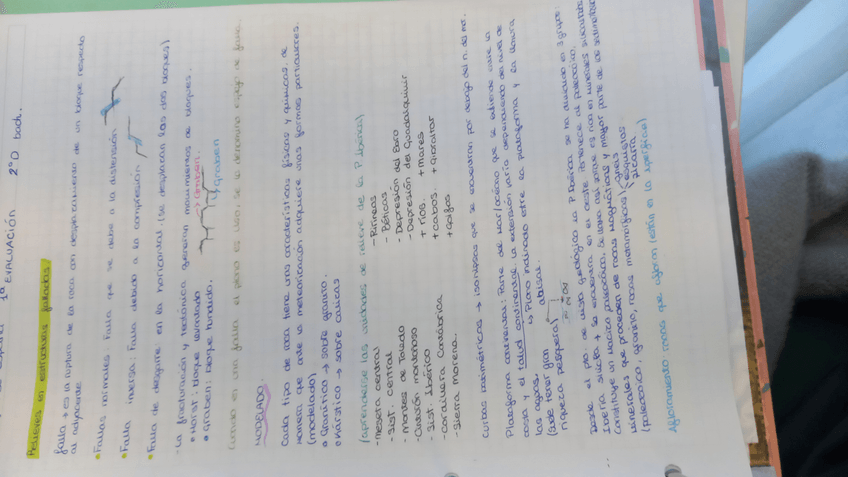 1ª EVALUACIÓN 2ºD bach.
Relieves en estructuras falladas
falla → es la ruptura de la roca con desplazamiento de un bloque respecto
al adyacente.
• Fallas normales: Falla que se debe a la distensión
• Falla inversa: Falla debido a la compresión
• Falla de desgarre: en la horizontal (se desplazan las dos bloques)
- La fracturación y tectónica generan movimientos de bloques.
• Horst: bloque levantado → Graben.
• graben: bloque hundido. Graben
Cuando en una falla el plano es liso, se le denomina espejo de falla.
MODELADO
Cada tipo de roca tiene unas características físicas y químicas, de
manera que ante la meteorización adquiere unas formas particulares.
(modelado)
• Granítico → sobre granito.
• Kárstico → sobre calizas
(aprenderse las unidades de relieve de la P. Ibérica)
- meseta central - Pirineos
- Sist. Central - Béticas
- Montes de Toledo - Depresión del Ebro
- Macizo montañoso - Depresión del Guadalquivir
- Sist. Ibérico + ríos. + mares
- Cordillera Cantábrica + cabos. + Gibraltar
- Sierra Morena. + golfos
curvas batimétricas → isohipsas que se encuentran por debajo del n. del mar.
Plataforma continental: Parte del mar/océano que se extiende entre la
costa y el talud continental. La extensión varía dependiendo del nivel de
las aguas. ↳ Plano inclinado entre la plataforma y la llanura
(suele tener gran abisal.
riqueza pesquera)
Desde el pto de vista geológico la P. Ibérica se ha dividido en 3 grupos:
Iberia silícea → se encuentra en el oeste. Pertenece al paleozoico.
Constituye un macizo paleozoico. Se llama así porque es rico en minerales silicatados
minerales que proceden de rocas magmáticas y mayor parte de las sedimentarias
(paleozoico, granito, rocas metamórficas) gneis
esquistos
pizarra
Afloramiento: rocas que afloran (están en la superficie)